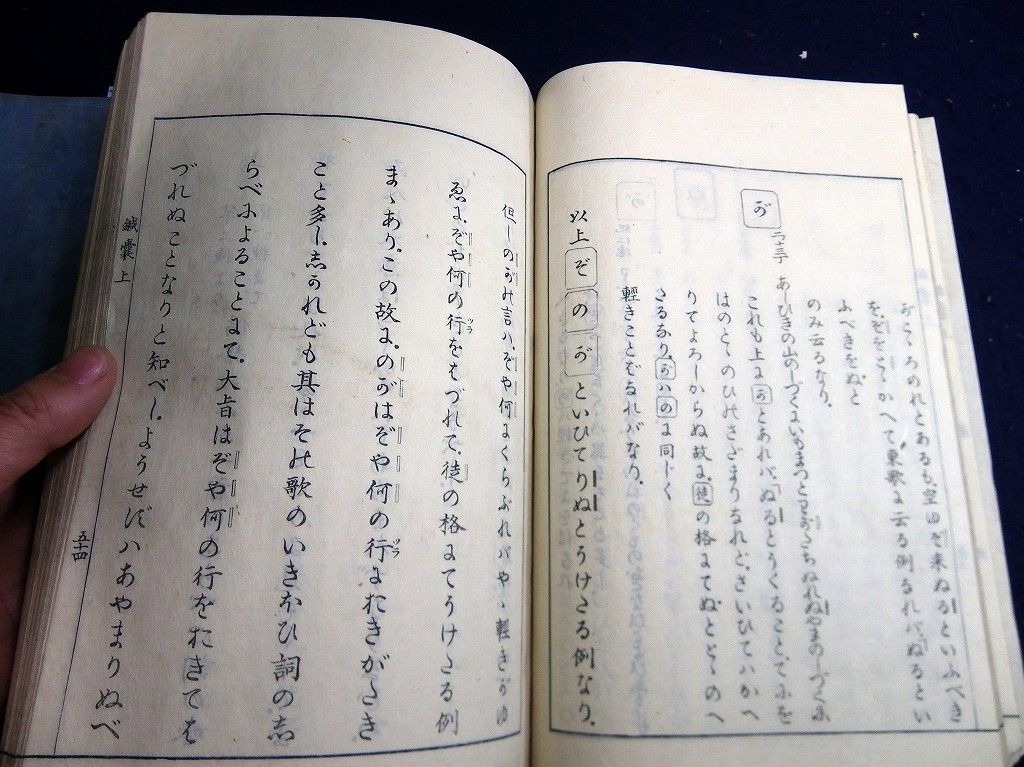 ぶころのれとあるも、空ゆを来ぬるといふべき
を、をとゝかへて、東歌に云る例なれバ、ぬるとい
ふべきをぬと
のみ云るなり。
が 二ノ三丁 あしひきの山のしづくにいもまつとわがたちぬれぬやまのしづくに
これも上に が とあれバ、ぬるとうくることゝてにを
はのとゝのひのさだまりなれど、さいひてハかへ
りてよろしからぬ故に、 徒 の格にてぬとゝのへ
さるなり、 が ハ の に同じく
輕きことばなれバなり、
以上 ぞ の が といひてりぬとうけたる例なり、
但しのがみ言ハ、ぞや何にくらぶれバやゝ輕きがゆ
ゑに、ぞや何の行をはづれて、徒の格にてうけたる例
まゝあり、この故に、のがはぞや何の行におきがたき
こと多し、志かれども其はその歌のいきほひ詞の志
らべによることにて、大旨はぞや何の行をおきては
づれぬことなりと知べし、ようせずハあやまりぬべ
鍼囊 上
五十四